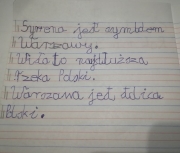 Syrena jest symblem
Warszawy.
Wisła to najdłuższa
rzeka Polski.
Warszawa jest stolica
Polski.